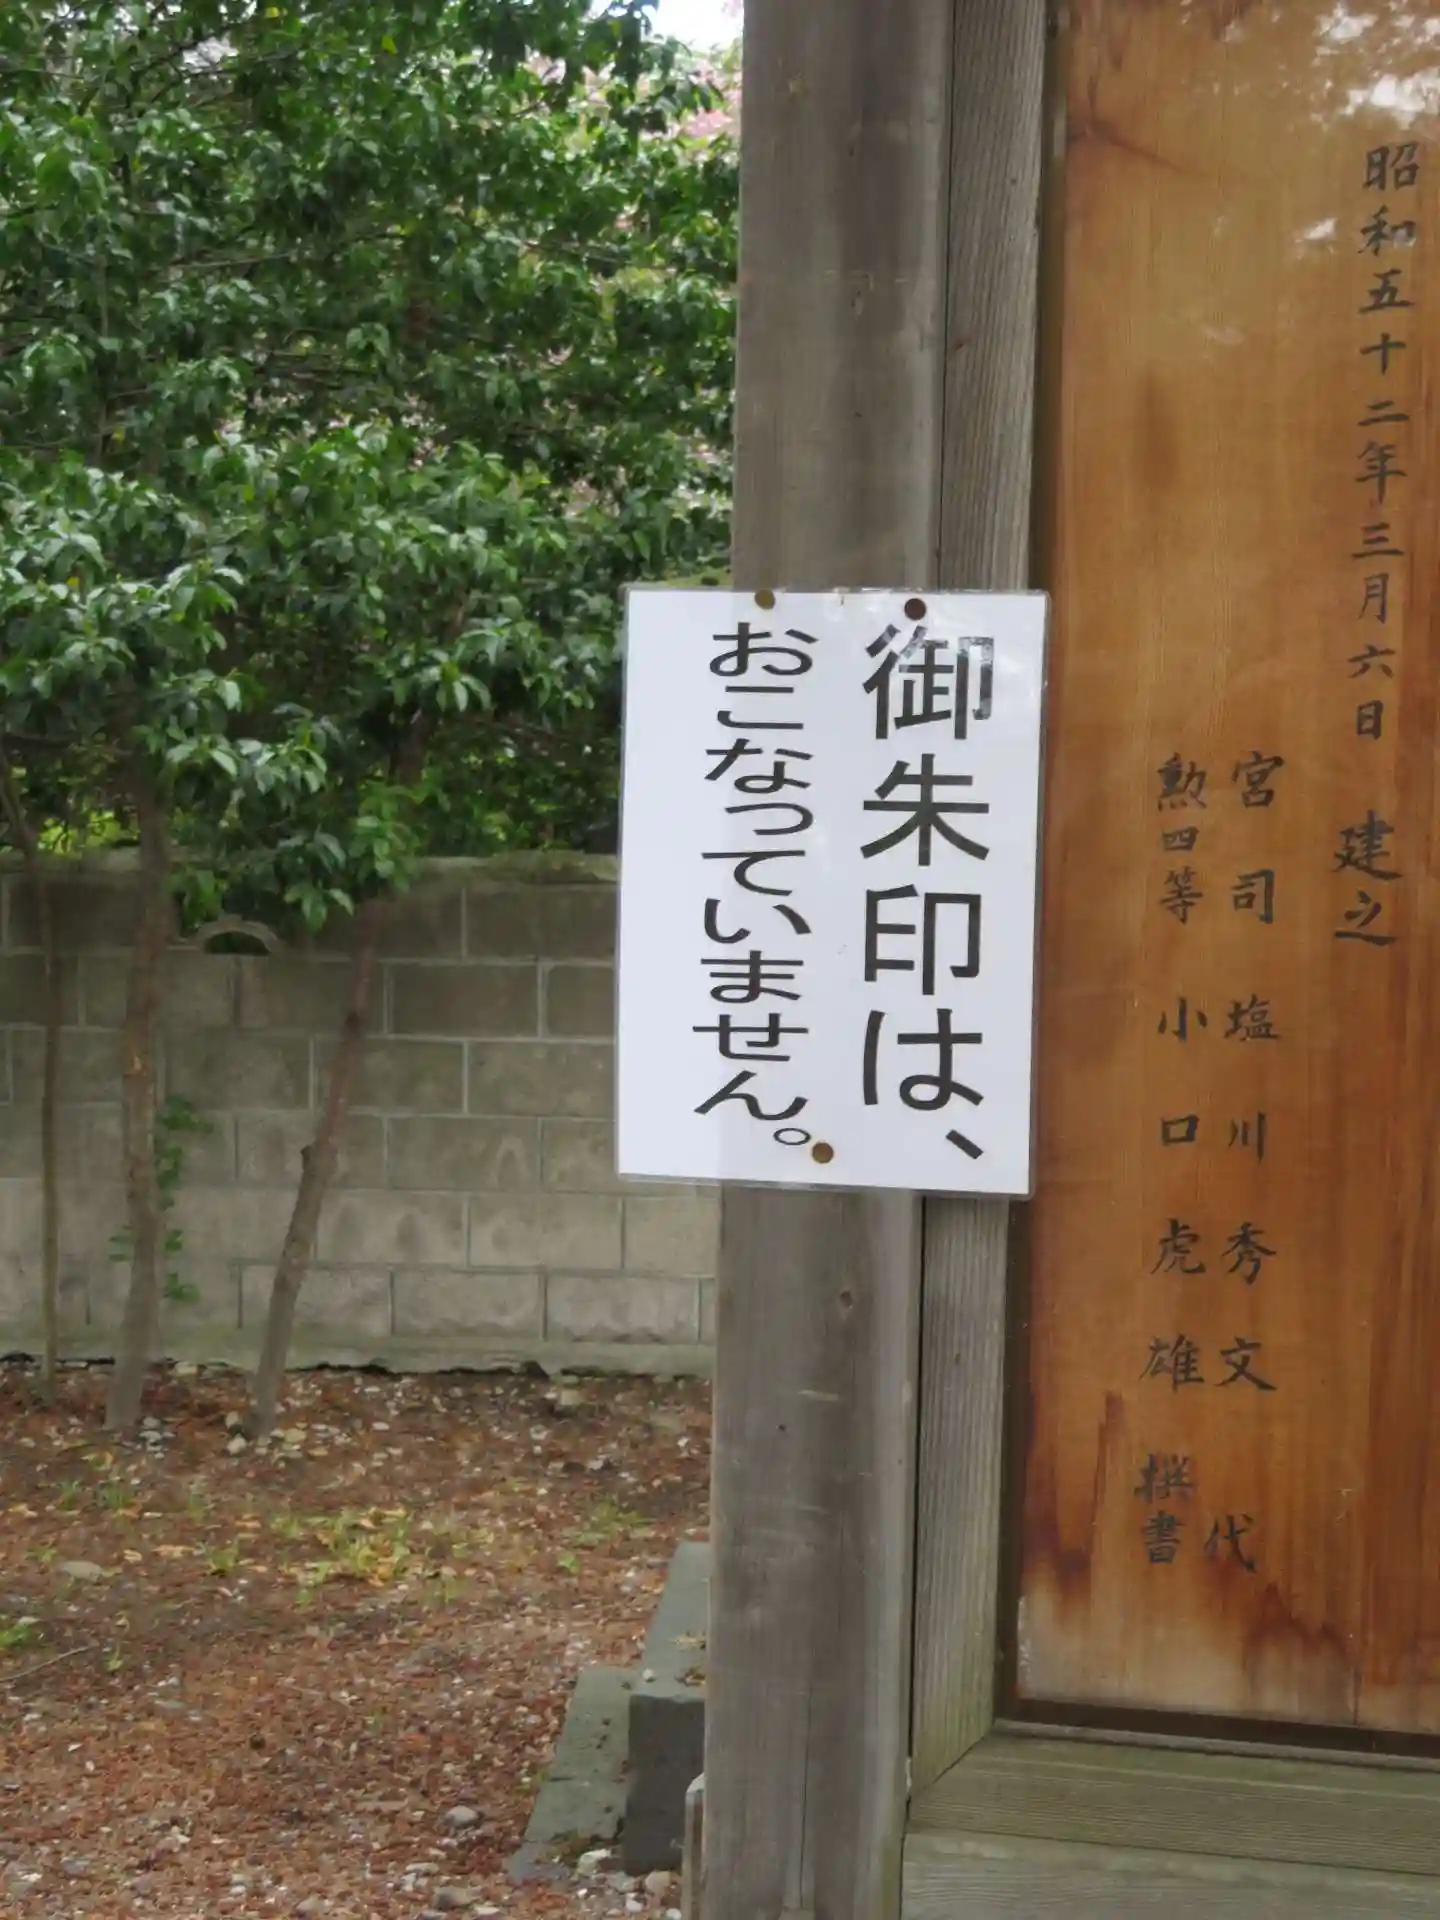 御朱印は、
おこなっていません。
昭和五十二年三月六日 建之
宮司 塩川秀文 代
勲四等 小口虎雄 撰書